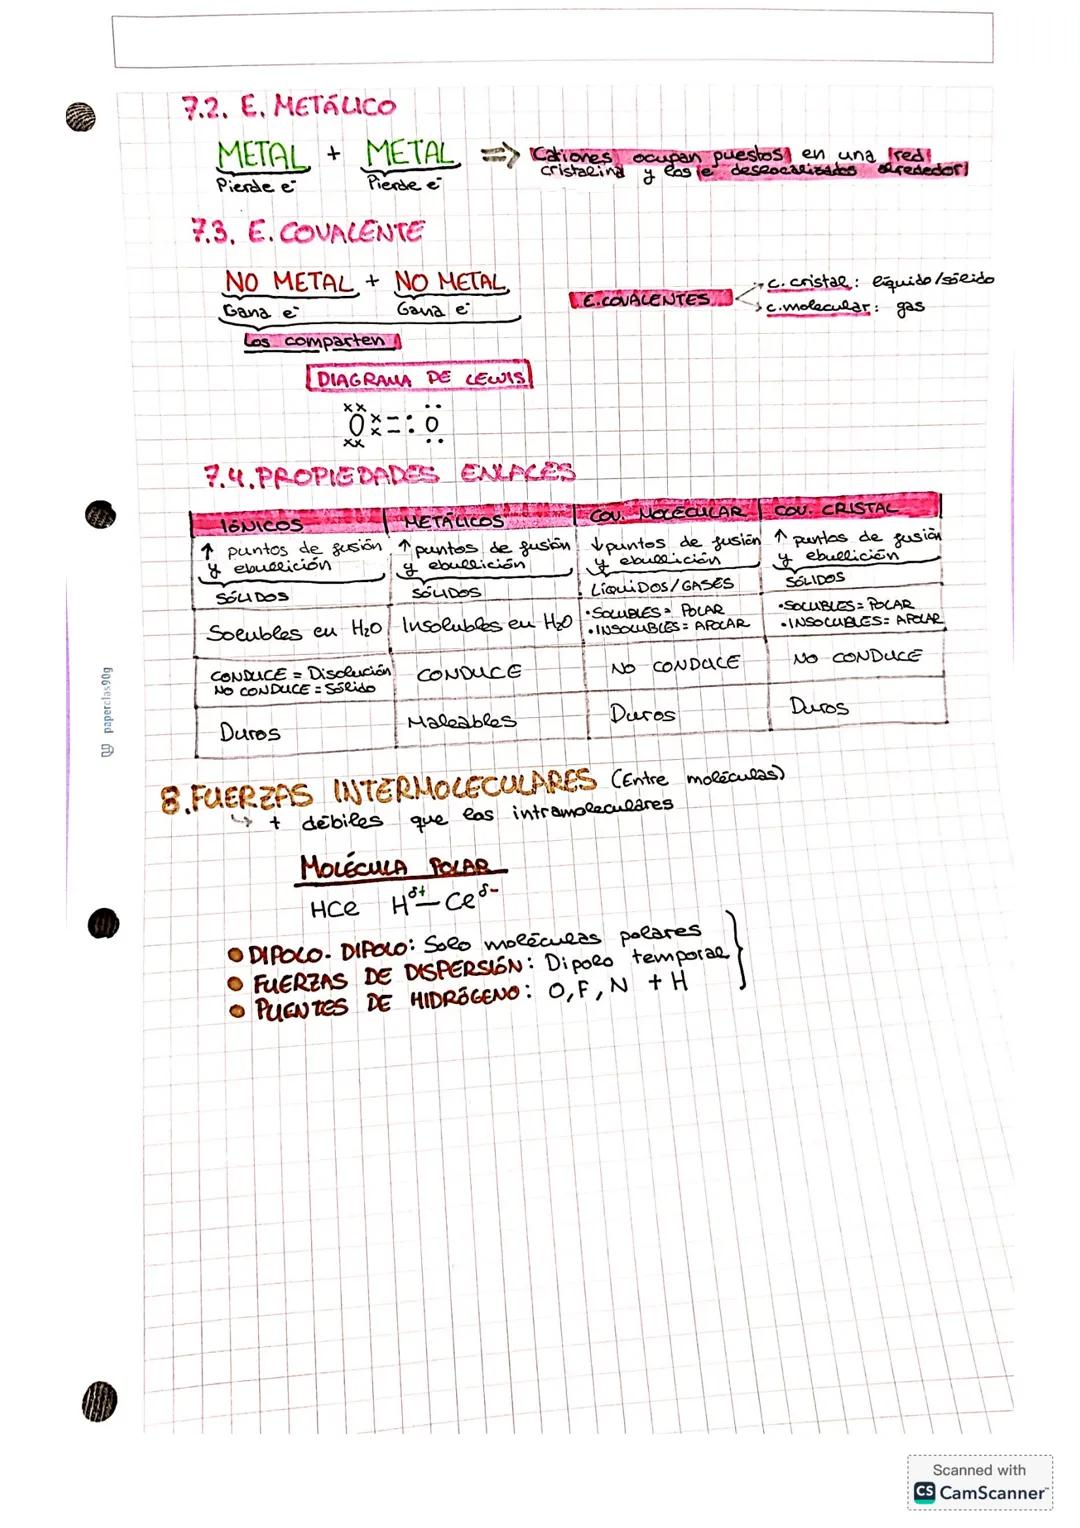 7.2. E. METÁLICO
METAL + METAL => Cationes ocupan puestos en una red
Pierde e⁻ Pierde e⁻ cristalina y los e⁻ deslocalizados alrededor
7.3. E. COVALENTE
NO METAL + NO METAL
Gana e⁻ Gana e⁻
Los comparten
E. COVALENTES
c. cristal: líquido/sólido
c. molecular: gas
DIAGRAMA DE LEWIS
xx ..
O x = : O
xx ..
7.4. PROPIEDADES ENLACES
IÓNICOS METÁLICOS COV. MOLECULAR COV. CRISTAL
↑ puntos de fusión ↑ puntos de fusión ↓ puntos de fusión ↑ puntos de fusión
y ebullición y ebullición y ebullición y ebullición
SÓLIDOS SÓLIDOS LÍQUIDOS/GASES SÓLIDOS
Solubles en H₂O Insolubles en H₂O •SOLUBLES = POLAR •SOLUBLES = POLAR
•INSOLUBLES = APOLAR •INSOLUBLES = APOLAR
CONDUCE = Disolución CONDUCE NO CONDUCE NO CONDUCE
NO CONDUCE = Sólido
Duros Maleables Duros Duros
8. FUERZAS INTERMOLECULARES (Entre moléculas)
↳ + débiles que las intramoleculares
MOLÉCULA POLAR
HCl H^δ+ — Cl^δ-
• DIPOLO-DIPOLO: Solo moléculas polares
• FUERZAS DE DISPERSIÓN: Dipolo temporal
• PUENTES DE HIDRÓGENO: O, F, N + H
paperclas90g
Scanned with
CS CamScanner™